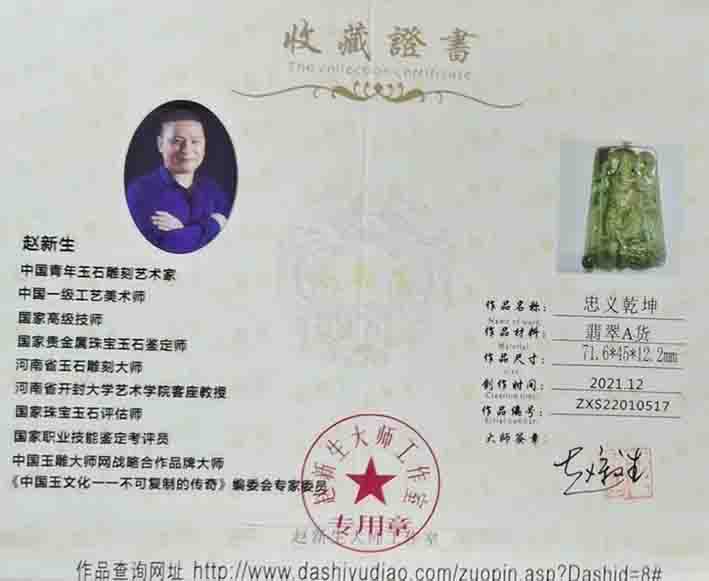 收藏證書
The collection certificate
赵新生
中国青年玉石雕刻艺术家
中国一级工艺美术师
国家高级技师
国家贵金属珠宝玉石鉴定师
河南省玉石雕刻大师
河南省开封大学艺术学院客座教授
国家珠宝玉石评估师
国家职业技能鉴定考评员
中国玉雕大师网战略合作品牌大师
《中国玉文化一一不可复制的传奇》编委会专家委员
作品名称： 忠义乾坤
Name of work
作品材料： 翡翠A货
Material
作品尺寸： 71.6*45*12.2mm
size
创作时间： 2021.12
Creation time:
作品编号： ZXS22010517
Serial number:
大师签章：
赵新生大师工作室
专用章
赵新生大师工作室
作品查询网址 http://www.dashiyudiao.com/zuopin.asp?Dashid=8#